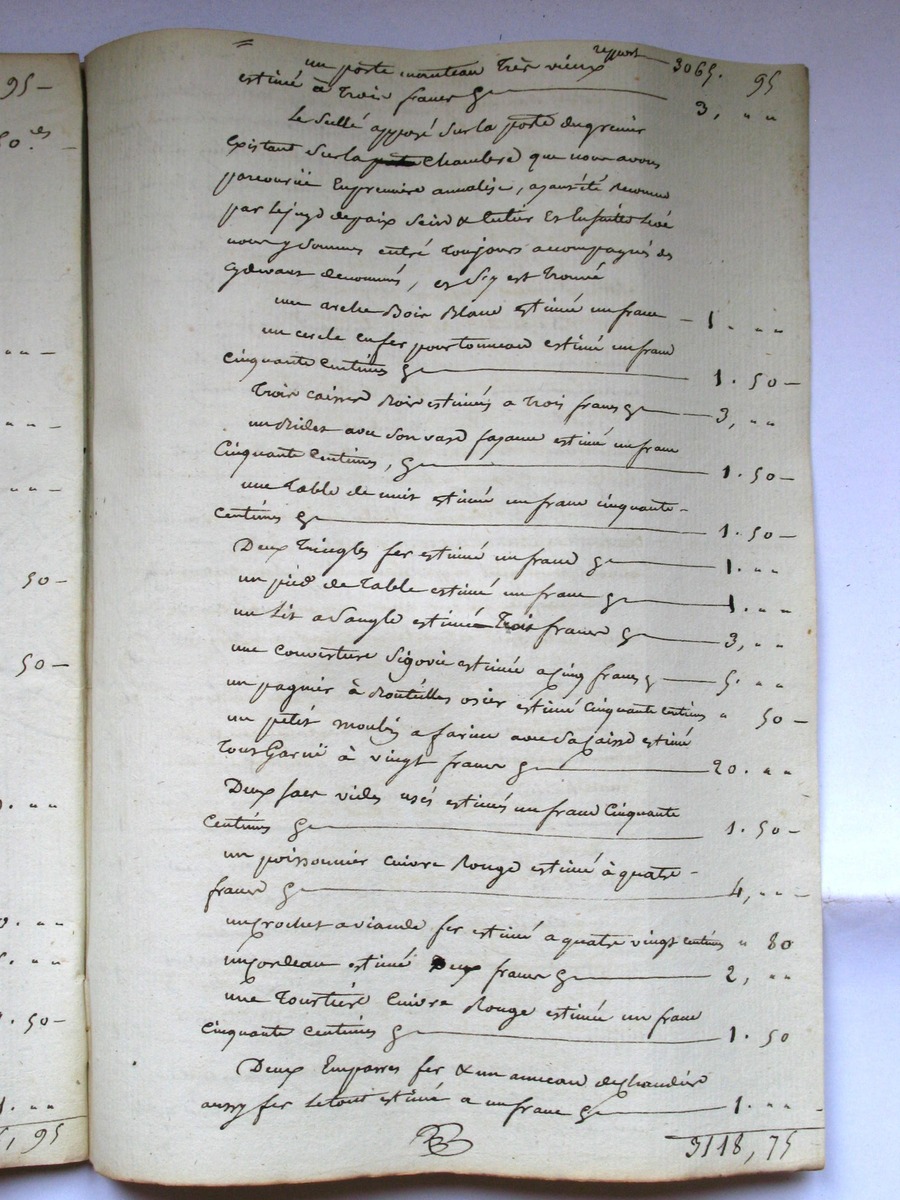 95 -
report 3065. 95
un porte manteau très vieux
estimé à trois francs 3, " "
Le scellé apposé sur la porte du grenier
Existant sur la chambre que nous avons
parcouruë En première annalise, ayant été reconnu
par le juge de paix sain & entier Et Ensuitte Levé
nous y sommes entré toujours accompagnés des
cydevant denommés, et s'y est trouvé
une arche Bois Blanc estimée un franc - 1. " "
un cercle en fer pour tonneau estimé un franc
cinquante centimes 1. 50 -
Trois caisses Bois estimées a trois francs 3, " "
un Bidet avec son vase fayance estimé un franc
Cinquante Centimes, 1. 50 -
une table de nuit estimée un franc cinquante -
centimes 1. 50 -
Deux tringles fer estimé un franc 1. " "
un pied de table estimé un franc 1. " "
un Lit a sangle estimé trois francs 3, " "
une couverture Ségovie estimée a cinq francs 5. " "
un pagnier à Bouteilles osier estimé Cinquante centimes " 50 -
un petit moulin a farine avec sa caisse estimé
tout Garni à vingt francs 20. " "
Deux sacs vides usés estimés un franc Cinquante
Centimes 1. 50 -
un poissonnier cuivre Rouge estimé à quatre -
francs 4, " " -
un crochet a viande fer estimé a quatre vingt centimes " 80
un cordeau estimé Deux francs 2, " "
une tourtière Cuivre Rouge estimée un franc
Cinquante centimes 1. 50
Deux Emparres fer & un anneau de chaudière
aussy fer Le tout estimé a un franc 1. " " -
3118, 75
50 -
50 -
50 -
95